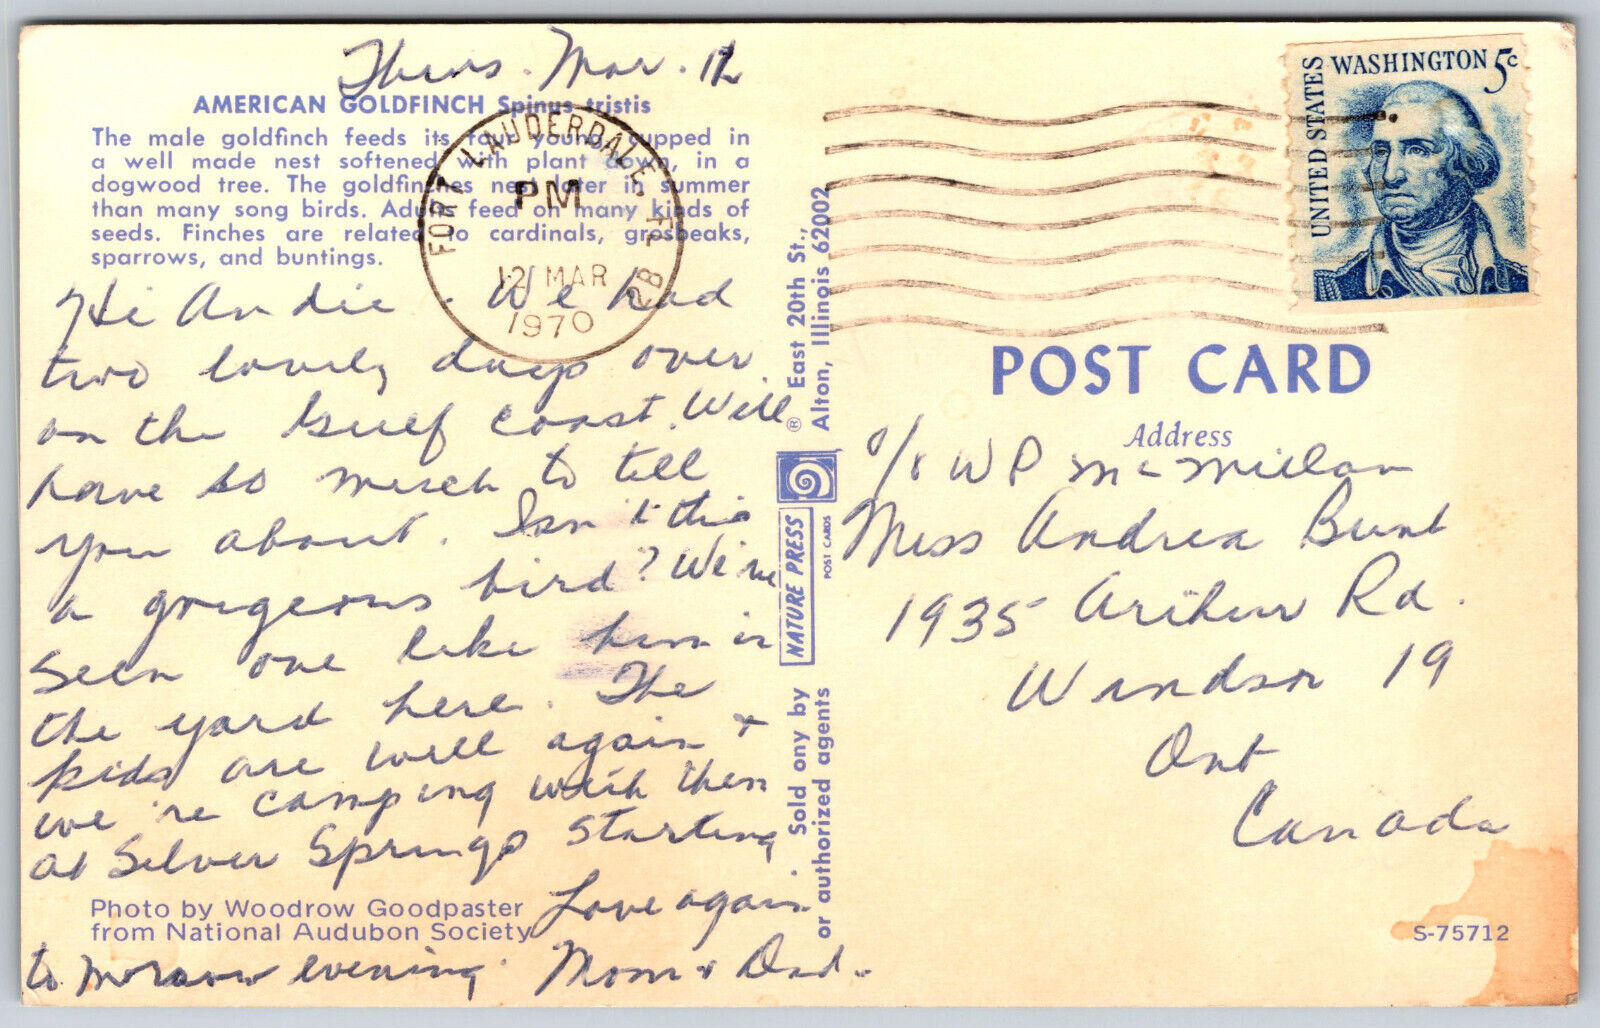 Thurs. Mar. 12
AMERICAN GOLDFINCH Spinus tristis
The male goldfinch feeds its four young cupped in
a well made nest softened with plant down, in a
dogwood tree. The goldfinches nest later in summer
than many song birds. Adults feed on many kinds of
seeds. Finches are related to cardinals, grosbeaks,
sparrows, and buntings.
FORT LAUDERDALE FL
PM
12 MAR
1970
Hi Andie. We had
two lovely days over
on the Gulf Coast. Will
have so much to tell
you about. Isn't this
a gorgeous bird? We've
seen one like him in
the yard here. The
kids are well again &
we're camping with them
at Silver Springs starting
to morrow evening.
Love again
Mom & Dad.
Photo by Woodrow Goodpaster
from National Audubon Society
East 20th St.,
® Alton, Illinois 62002
NATURE PRESS
POST CARDS
Sold ony by
or authorized agents
UNITED STATES
WASHINGTON 5c
POST CARD
Address
c/o W P McMillan
Miss Andrea Bunt
1935 Arthur Rd.
Windsor 19
Ont
Canada
S-75712